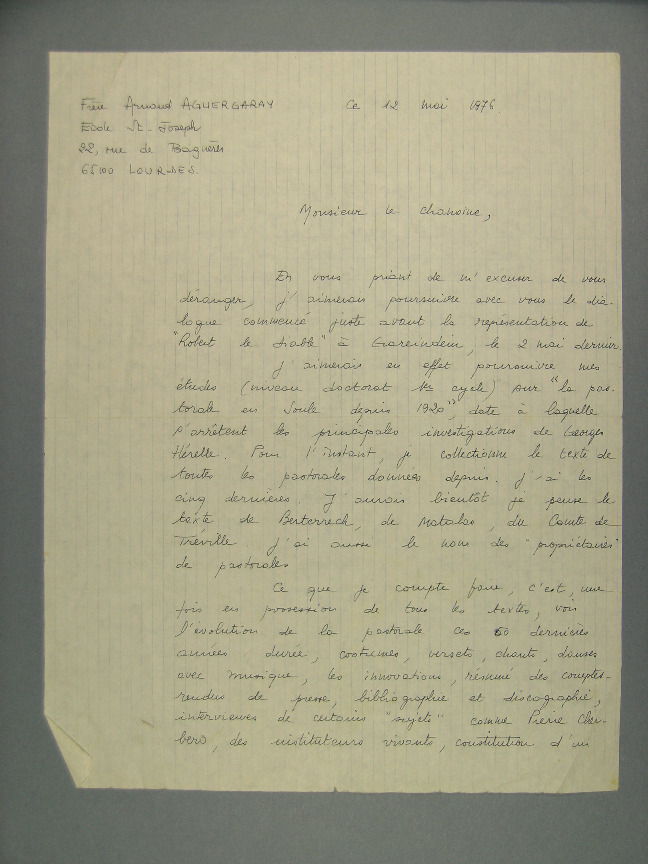 Frère Arnaud AGUERGARAY Ce 12 mai 1976
Ecole St-Joseph
22, rue de Bagnères
65100 LOURDES.
Monsieur le chanoine,
En vous priant de m'excuser de vous
déranger, j'aimerais poursuivre avec vous le dia-
logue commencé juste avant la représentation de
"Robert le diable" à Gareindein, le 2 mai dernier.
J'aimerais en effet poursuivre mes
études (niveau doctorat 3e cycle) sur "la pas-
torale en Soule depuis 1920", date à laquelle
s'arrêtent les principales investigations de Georges
Hérelle. Pour l'instant, je collectionne le texte de
toutes les pastorales données depuis. J'ai les
cinq dernières. J'aurais bientôt je pense le
texte de Berterrech, de Matalas, du Comte de
Tréville. J'ai aussi le nom des "propriétaires"
de pastorales
Ce que je compte faire, c'est, une
fois en possession de tous les textes, voir
l'évolution de la pastorale ces 50 dernières
années durée, costumes, versets, chants, danses
avec musique, les innovations, résumé des comptes-
rendus de presse, bibliographie et discographie,
interviewes de certains "sujets" comme Pierre Cher-
bero, des instituteurs vivants, constitution d'un